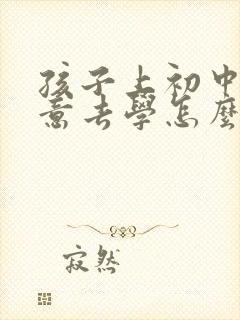 孩子上初中
意去學怎麼
寂然